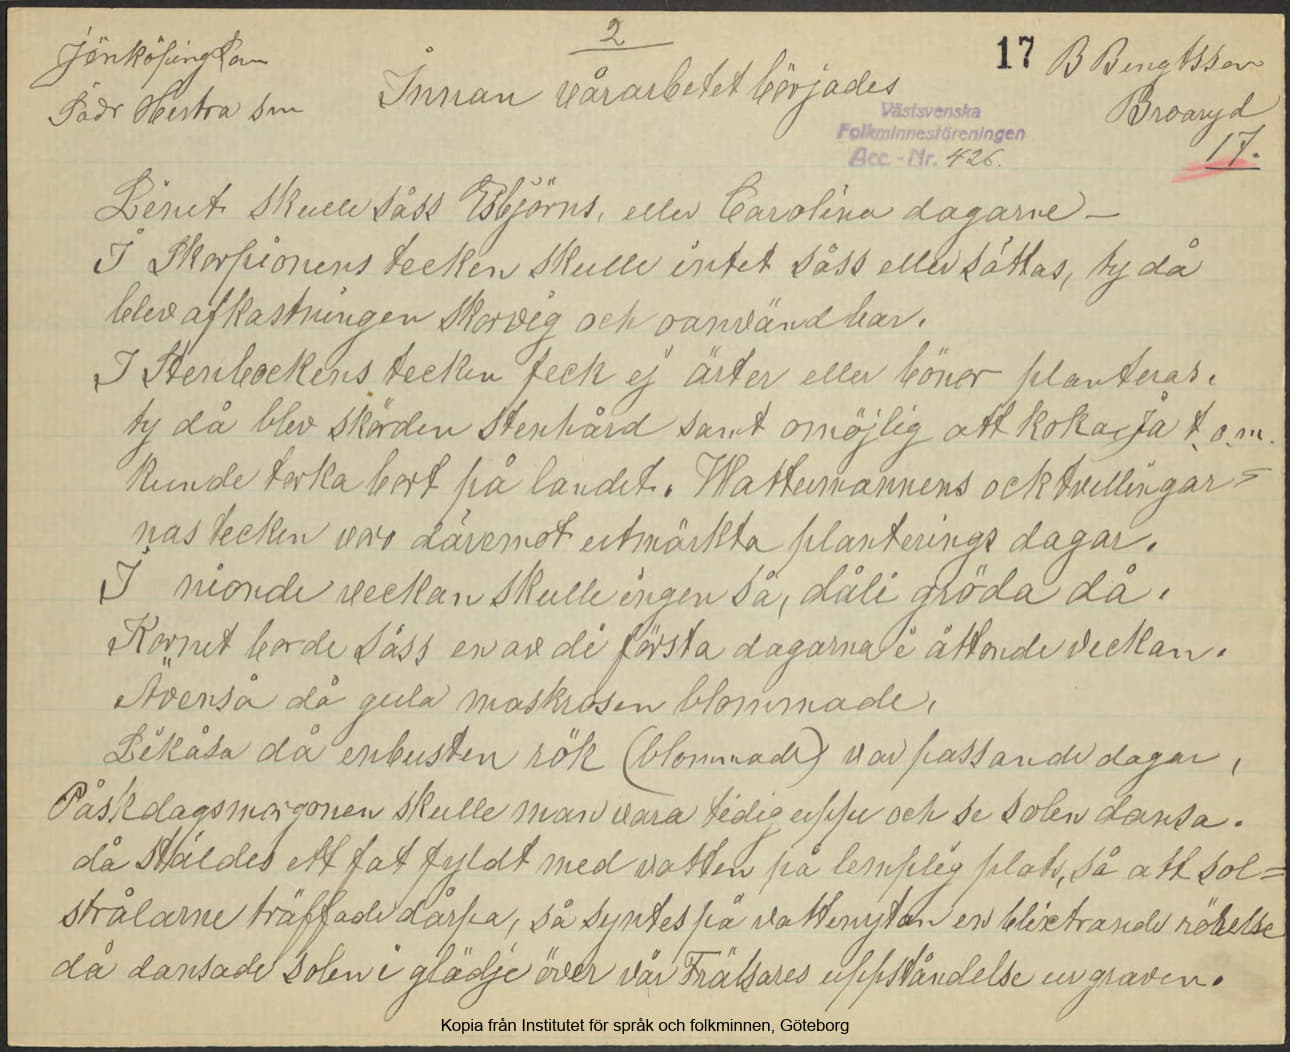 2
Jönköping Län
Södr Hestra sn
Innan vårarbetet börjades
17
B Bengtsson
Broaryd
17.
Västsvenska
Folkminnesföreningen
Acc.-Nr. 426.
Linet skulle såss Esbjörns, eller Carolina dagarne —
I Skorpionens tecken skulle intet såss eller sättas, ty då
blev afkastningen skorvig och oanvändbar.
I Stenbockens tecken feck ej ärter eller bönor planteras,
ty då blev skörden stenhård samt omöjlig att koka, Ja t.o.m.
kunde torka bort på landet. Wattumannens ock tvillingar=
nas tecken voro däremot utmärkta planterings dagar.
I nionde veckan skulle ingen så, dåli gröda då.
Kornet borde såss en av di första dagarna i åttonde veckan.
Ävenså då gula maskrosen blommade.
Likåsa då enbusken rök (blommade) var passande dagar,
Påskdagsmorgonen skulle man vara tidig uppe och se solen dansa.
då stäldes ett fat fyldt med vatten på lemplig plats, så att sol=
strålarne träffade dårpa, så syntes på vattenytan en blixtrande rörelse
då dansade solen i glädje över vår Frälsares uppståndelse ur graven.
Kopia från Institutet för språk och folkminnen, Göteborg